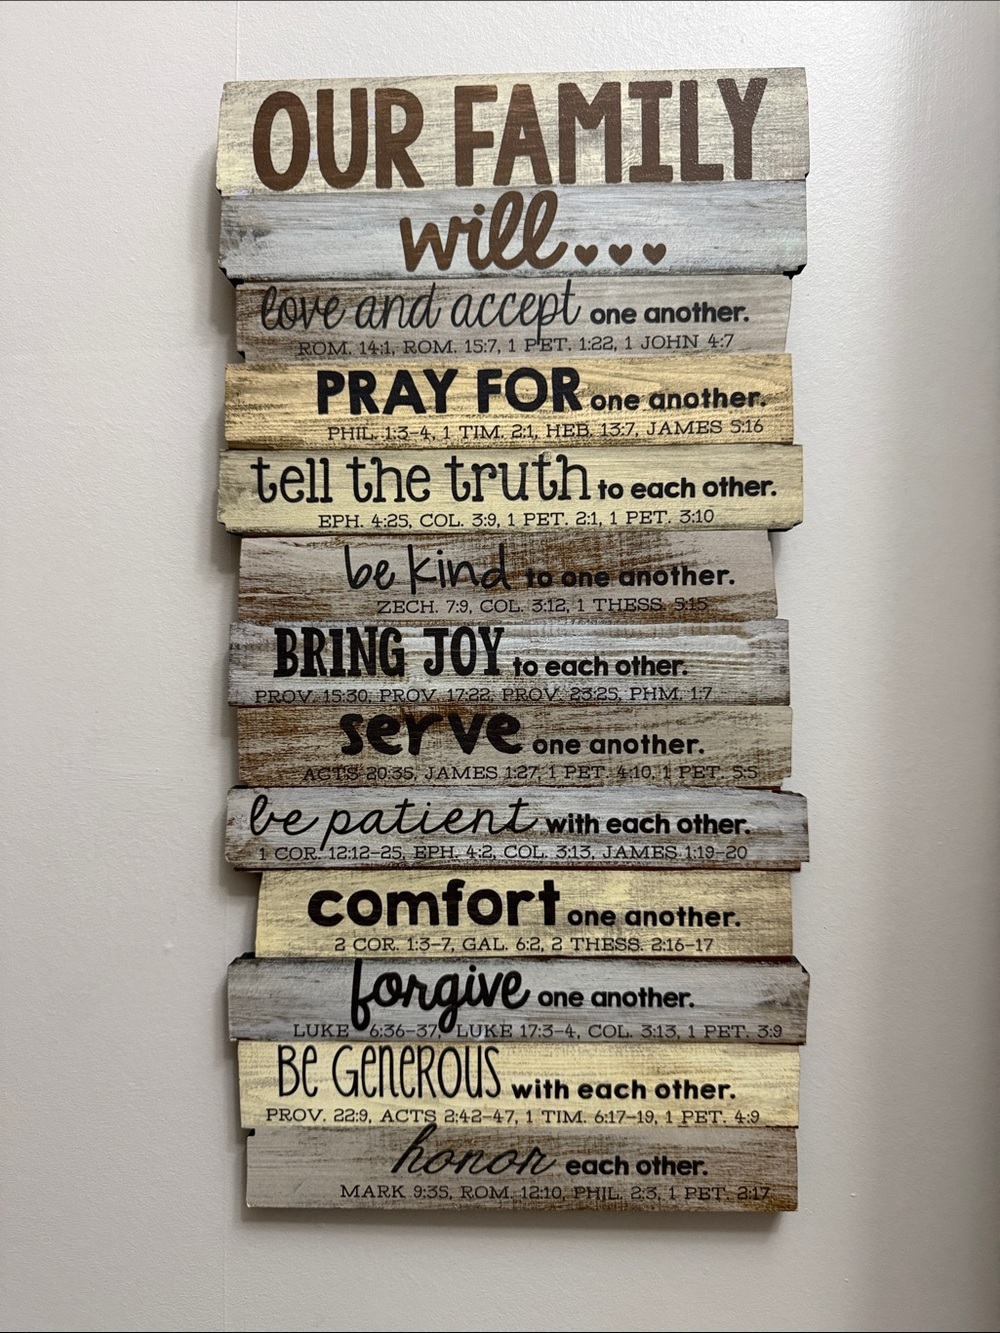 OUR FAMILY
will...
love and accept one another.
ROM. 14:1, ROM. 15:7, 1 PET. 1:22, 1 JOHN 4:7
PRAY FOR one another.
PHIL. 1:3-4, 1 TIM. 2:1, HEB. 13:7, JAMES 5:16
tell the truth to each other.
EPH. 4:25, COL. 3:9, 1 PET. 2:1, 1 PET. 3:10
be kind to one another.
ZECH. 7:9, COL. 3:12, 1 THESS. 5:15
BRING JOY to each other.
PROV. 15:30, PROV. 17:22, PROV. 23:25, PHM. 1:7
serve one another.
ACTS 20:35, JAMES 1:27, 1 PET. 4:10, 1 PET. 5:5
be patient with each other.
1 COR. 12:12-25, EPH. 4:2, COL. 3:13, JAMES 1:19-20
comfort one another.
2 COR. 1:3-7, GAL. 6:2, 2 THESS. 2:16-17
forgive one another.
LUKE 6:36-37, LUKE 17:3-4, COL. 3:13, 1 PET. 3:9
BE GENEROUS with each other.
PROV. 22:9, ACTS 2:42-47, 1 TIM. 6:17-19, 1 PET. 4:9
honor each other.
MARK 9:35, ROM. 12:10, PHIL. 2:3, 1 PET. 2:17